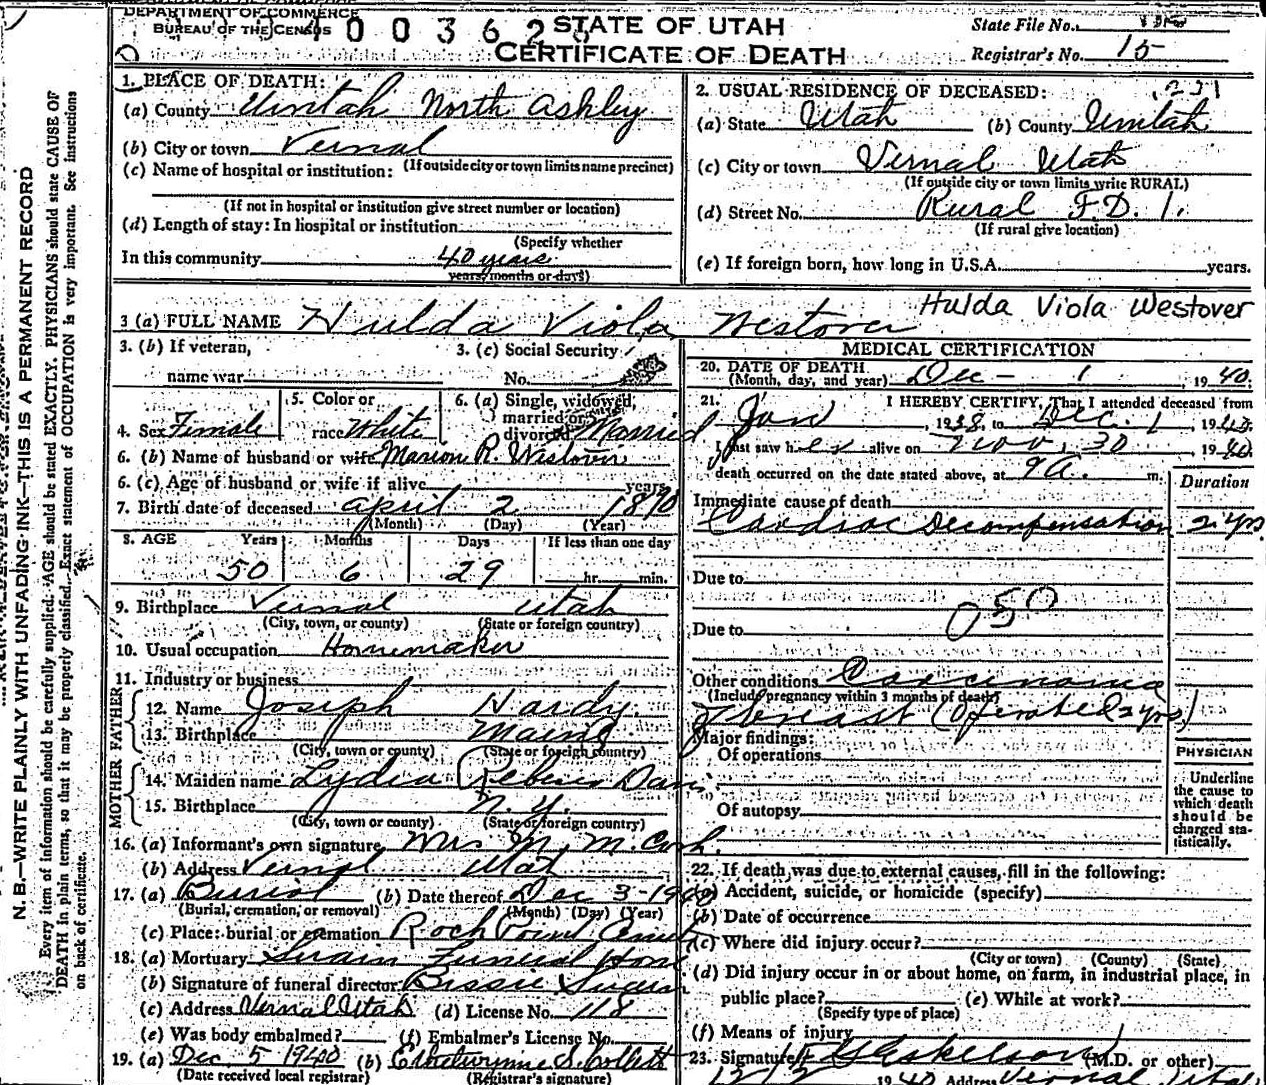 DEPARTMENT OF COMMERCE
BUREAU OF THE CENSUS
STATE OF UTAH
CERTIFICATE OF DEATH
State File No.
Registrar's No. 15
N. B.—WRITE PLAINLY WITH UNFADING INK—THIS IS A PERMANENT RECORD
Every item of information should be carefully supplied. AGE should be stated EXACTLY. PHYSICIANS should state CAUSE OF
DEATH in plain terms, so that it may be properly classified. Exact statement of OCCUPATION is very important. See instructions
on back of certificate.
1. PLACE OF DEATH:
(a) County Uintah North Ashley
(b) City or town Vernal
(If outside city or town limits name precinct)
(c) Name of hospital or institution:
(If not in hospital or institution give street number or location)
(d) Length of stay: In hospital or institution
(Specify whether
In this community 40 years
years, months or days)
2. USUAL RESIDENCE OF DECEASED:
(a) State Utah (b) County Uintah
(c) City or town Vernal Utah
(If outside city or town limits write RURAL)
(d) Street No. Rural F.D. 1.
(If rural give location)
(e) If foreign born, how long in U.S.A. years.
Hulda Viola Westover
3 (a) FULL NAME Hulda Viola Westover
3. (b) If veteran, name war
3. (c) Social Security No.
4. Sex Female
5. Color or race White
6. (a) Single, widowed, married or divorced Married
6. (b) Name of husband or wife Marion R. Westover
6. (c) Age of husband or wife if alive years
7. Birth date of deceased April 2 1890
(Month) (Day) (Year)
8. AGE Years Months Days If less than one day
50 6 29 hr. min.
9. Birthplace Vernal Utah
(City, town, or county) (State or foreign country)
10. Usual occupation Homemaker
11. Industry or business
FATHER
12. Name Joseph Hardy
13. Birthplace Maine
(City, town or county) (State or foreign country)
MOTHER
14. Maiden name Lydia Rebecca Davis
15. Birthplace N. Y.
(City, town or county) (State or foreign country)
16. (a) Informant's own signature Mrs
(b) Address Vernal Utah
17. (a) Burial (b) Date thereof Dec 3-1940
(Burial, cremation, or removal) (Month) (Day) (Year)
(c) Place: burial or cremation Rock Point
18. (a) Mortuary Swain Funeral Home
(b) Signature of funeral director Bessie Swain
(c) Address Vernal Utah (d) License No. 118
(e) Was body embalmed? (f) Embalmer's License No.
19. (a) Dec 5 1940 (b) S. Collett
(Date received local registrar) (Registrar's signature)
MEDICAL CERTIFICATION
20. DATE OF DEATH
(Month, day, and year) Dec - 1, 1940
21. I HEREBY CERTIFY, That I attended deceased from
Jan, 1938, to Dec. 1, 1940
I last saw her alive on Nov. 30 1940
death occurred on the date stated above, at 9 A. m.
Duration
Immediate cause of death
Cardiac Decompensation 2 yrs
Due to
050
Due to
Other conditions Carcinoma
(Include pregnancy within 3 months of death)
breast (Operated 2 yrs)
Major findings:
Of operations
Of autopsy
PHYSICIAN
Underline
the cause to
which death
should be
charged sta-
tistically.
22. If death was due to external causes, fill in the following:
(a) Accident, suicide, or homicide (specify)
(b) Date of occurrence
(c) Where did injury occur?
(City or town) (County) (State)
(d) Did injury occur in or about home, on farm, in industrial place, in
public place? (e) While at work?
(Specify type of place)
(f) Means of injury
23. Signature Eskelson (M.D. or other)
1940 Address Vernal